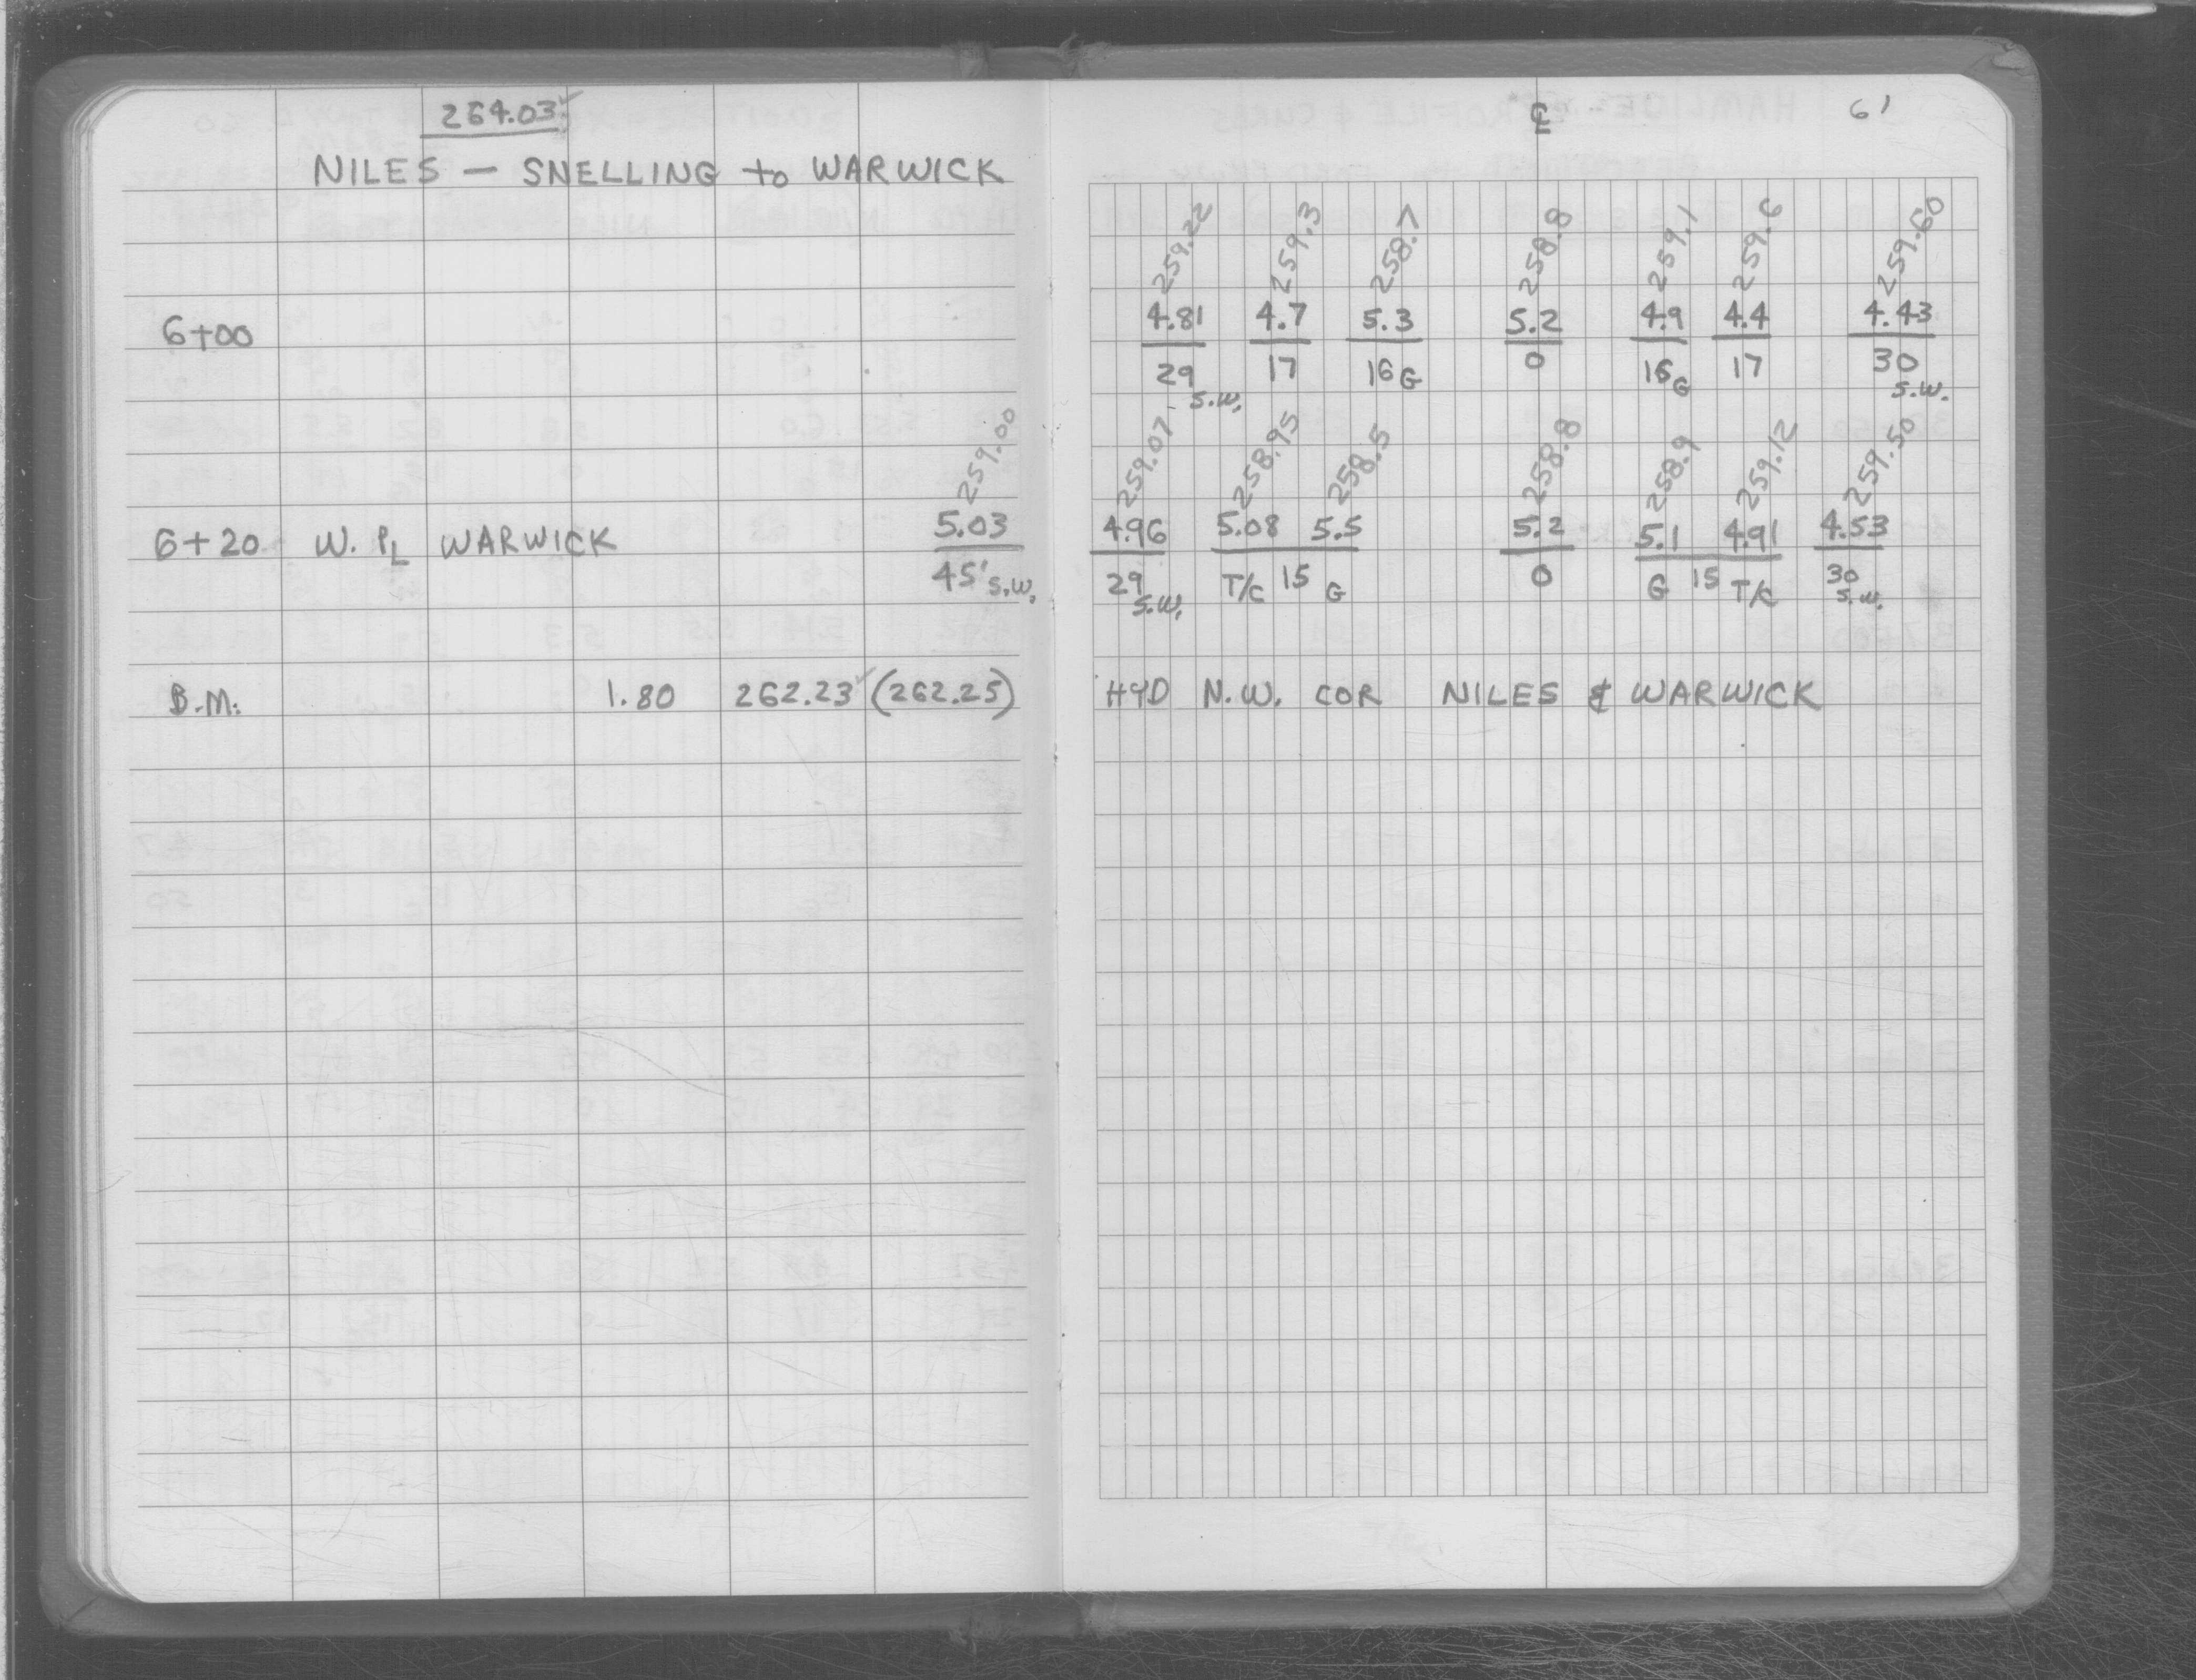 264.03 ✓
NILES — SNELLING to WARWICK
℄ 61
259.22 259.3 258.7 258.8 259.1 259.6 259.60
6+00 4.81 4.7 5.3 5.2 4.9 4.4 4.43
29 S.W. 17 16 G 0 16 G 17 30 S.W.
259.00 259.07 258.95 258.5 258.8 258.9 259.12 259.50
6+20 W. PL WARWICK 5.03 4.96 5.08 5.5 5.2 5.1 4.91 4.53
45' S.W. 29 S.W. T/C 15 G 0 G 15 T/C 30 S.W.
B.M. 1.80 262.23 ✓ (262.25) HYD N.W. COR NILES & WARWICK